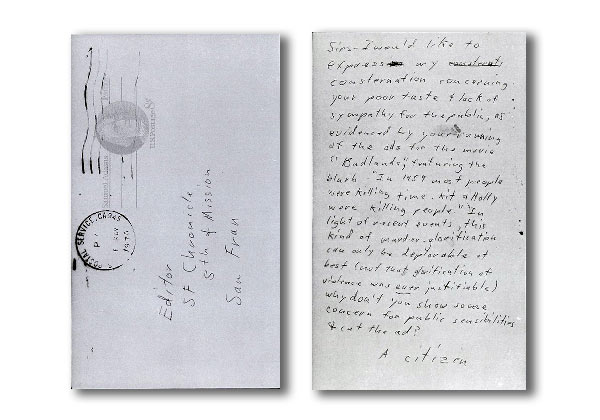 POSTAL SERVICE, CA 945
Editor
SF Chronicle
5th & Mission
San Fran
Sirs- I would like to
express my consternati
consternation concerning
your poor taste & lack of
sympathy for the public, as
evidenced by your running
of the ads for the movie
"Badlands," featuring the
blurb "In 1959 most people
were killing time. Kit & Holly
were killing people." In
light of recent events, this
kind of murder-glorification
can only be deplorable at
best (not that glorification of
violence was ever justifiable)
why don't you show some
concern for public sensibilities
& cut the ad?
A citizen